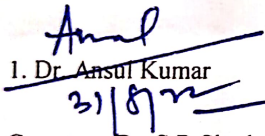 Ansul
1. Dr. Ansul Kumar
31/8/22